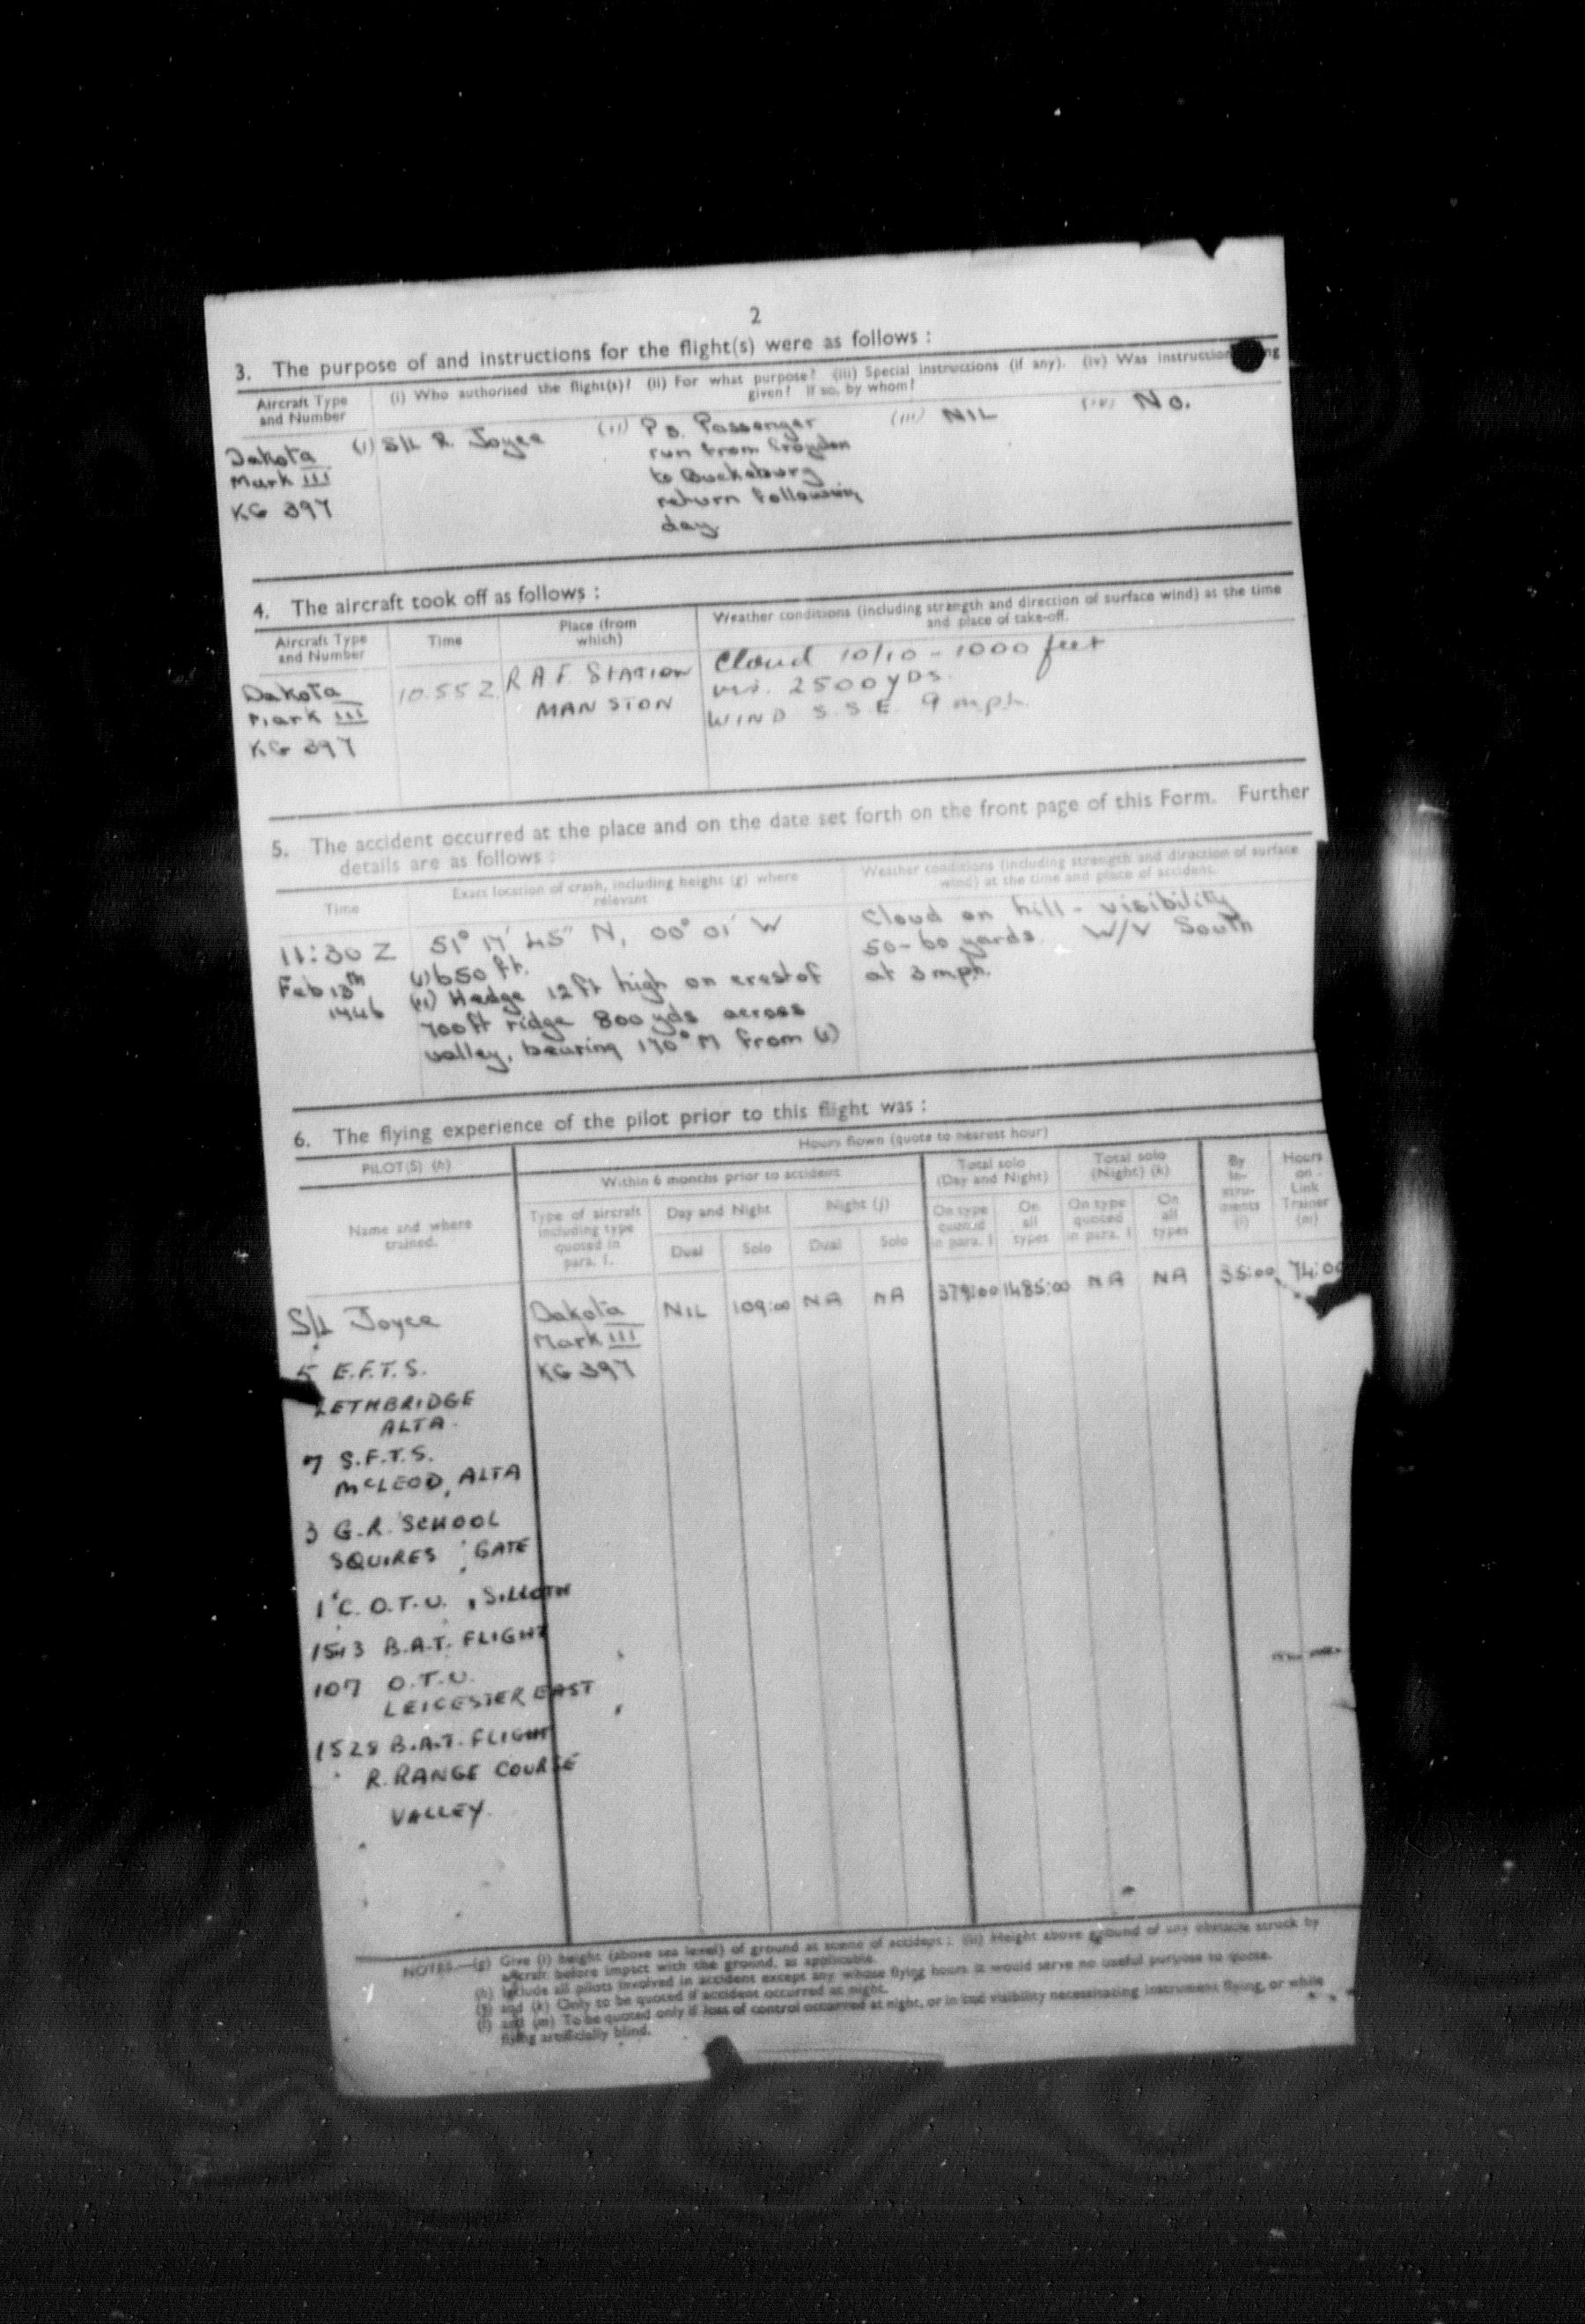 2
3. The purpose of and instructions for the flight(s) were as follows :
Aircraft Type and Number
(i) Who authorised the flight(s)? (ii) For what purpose? (iii) Special instructions (if any). (iv) Was instruction being given? If so, by whom?
Dakota Mark III KG 397
(i) S/L R. Joyce
(ii) P.B. Passenger
run from Croydon
to Buckeburg
return following
day
(iii) NIL
(iv) No.
4. The aircraft took off as follows :
Aircraft Type and Number
Time
Place (from which)
Weather conditions (including strength and direction of surface wind) at the time and place of take-off.
Dakota
Mark III
KG 397
10.55 Z
R.A.F. STATION
MANSTON
Cloud 10/10 - 1000 feet
vis. 2500 YDS.
WIND S.S.E. 9 mph.
5. The accident occurred at the place and on the date set forth on the front page of this Form. Further
details are as follows :
Time
Exact location of crash, including height (g) where relevant
Weather conditions (including strength and direction of surface wind) at the time and place of accident.
11:30 Z
Feb 13th
1946
51° 17' 45" N, 00° 01' W
(i) 650 ft.
(ii) Hedge 12 ft high on crest of
700ft ridge 800 yds across
valley, bearing 170° M from (i)
Cloud on hill - visibility
50-60 yards. W/V South
at 3 mph.
6. The flying experience of the pilot prior to this flight was :
PILOT(S) (h)
Hours flown (quote to nearest hour)
Name and where trained.
Within 6 months prior to accident
Type of aircraft including type quoted in para. 1.
Day and Night
Dual
Solo
Night (j)
Dual
Solo
Total solo (Day and Night)
On type quoted in para. 1
On all types
Total solo (Night) (k)
On type quoted in para. 1
On all types
By Instruments (l)
Hours on Link Trainer (m)
S/L Joyce
Dakota
Mark III
KG 397
NIL
109:00
NA
NA
379:00
1485:00
NA
NA
35:00
74:00
5 E.F.T.S.
LETHBRIDGE
ALTA.
7 S.F.T.S.
McLEOD, ALTA
3 G.R. SCHOOL
SQUIRES GATE
1 C. O.T.U., SILLOTH
1513 B.A.T. FLIGHT
107 O.T.U.
LEICESTER EAST
1528 B.A.T. FLIGHT
R. RANGE COURSE
VALLEY.
NOTES.—(g) Give (i) height (above sea level) of ground at scene of accident ; (ii) Height above ground of any obstacle struck by
aircraft before impact with the ground, as applicable.
(h) Include all pilots involved in accident except any whose flying hours it would serve no useful purpose to quote.
(j) and (k) Only to be quoted if accident occurred at night.
(l) and (m) To be quoted only if loss of control occurred at night, or in bad visibility necessitating instrument flying, or while
flying artificially blind.